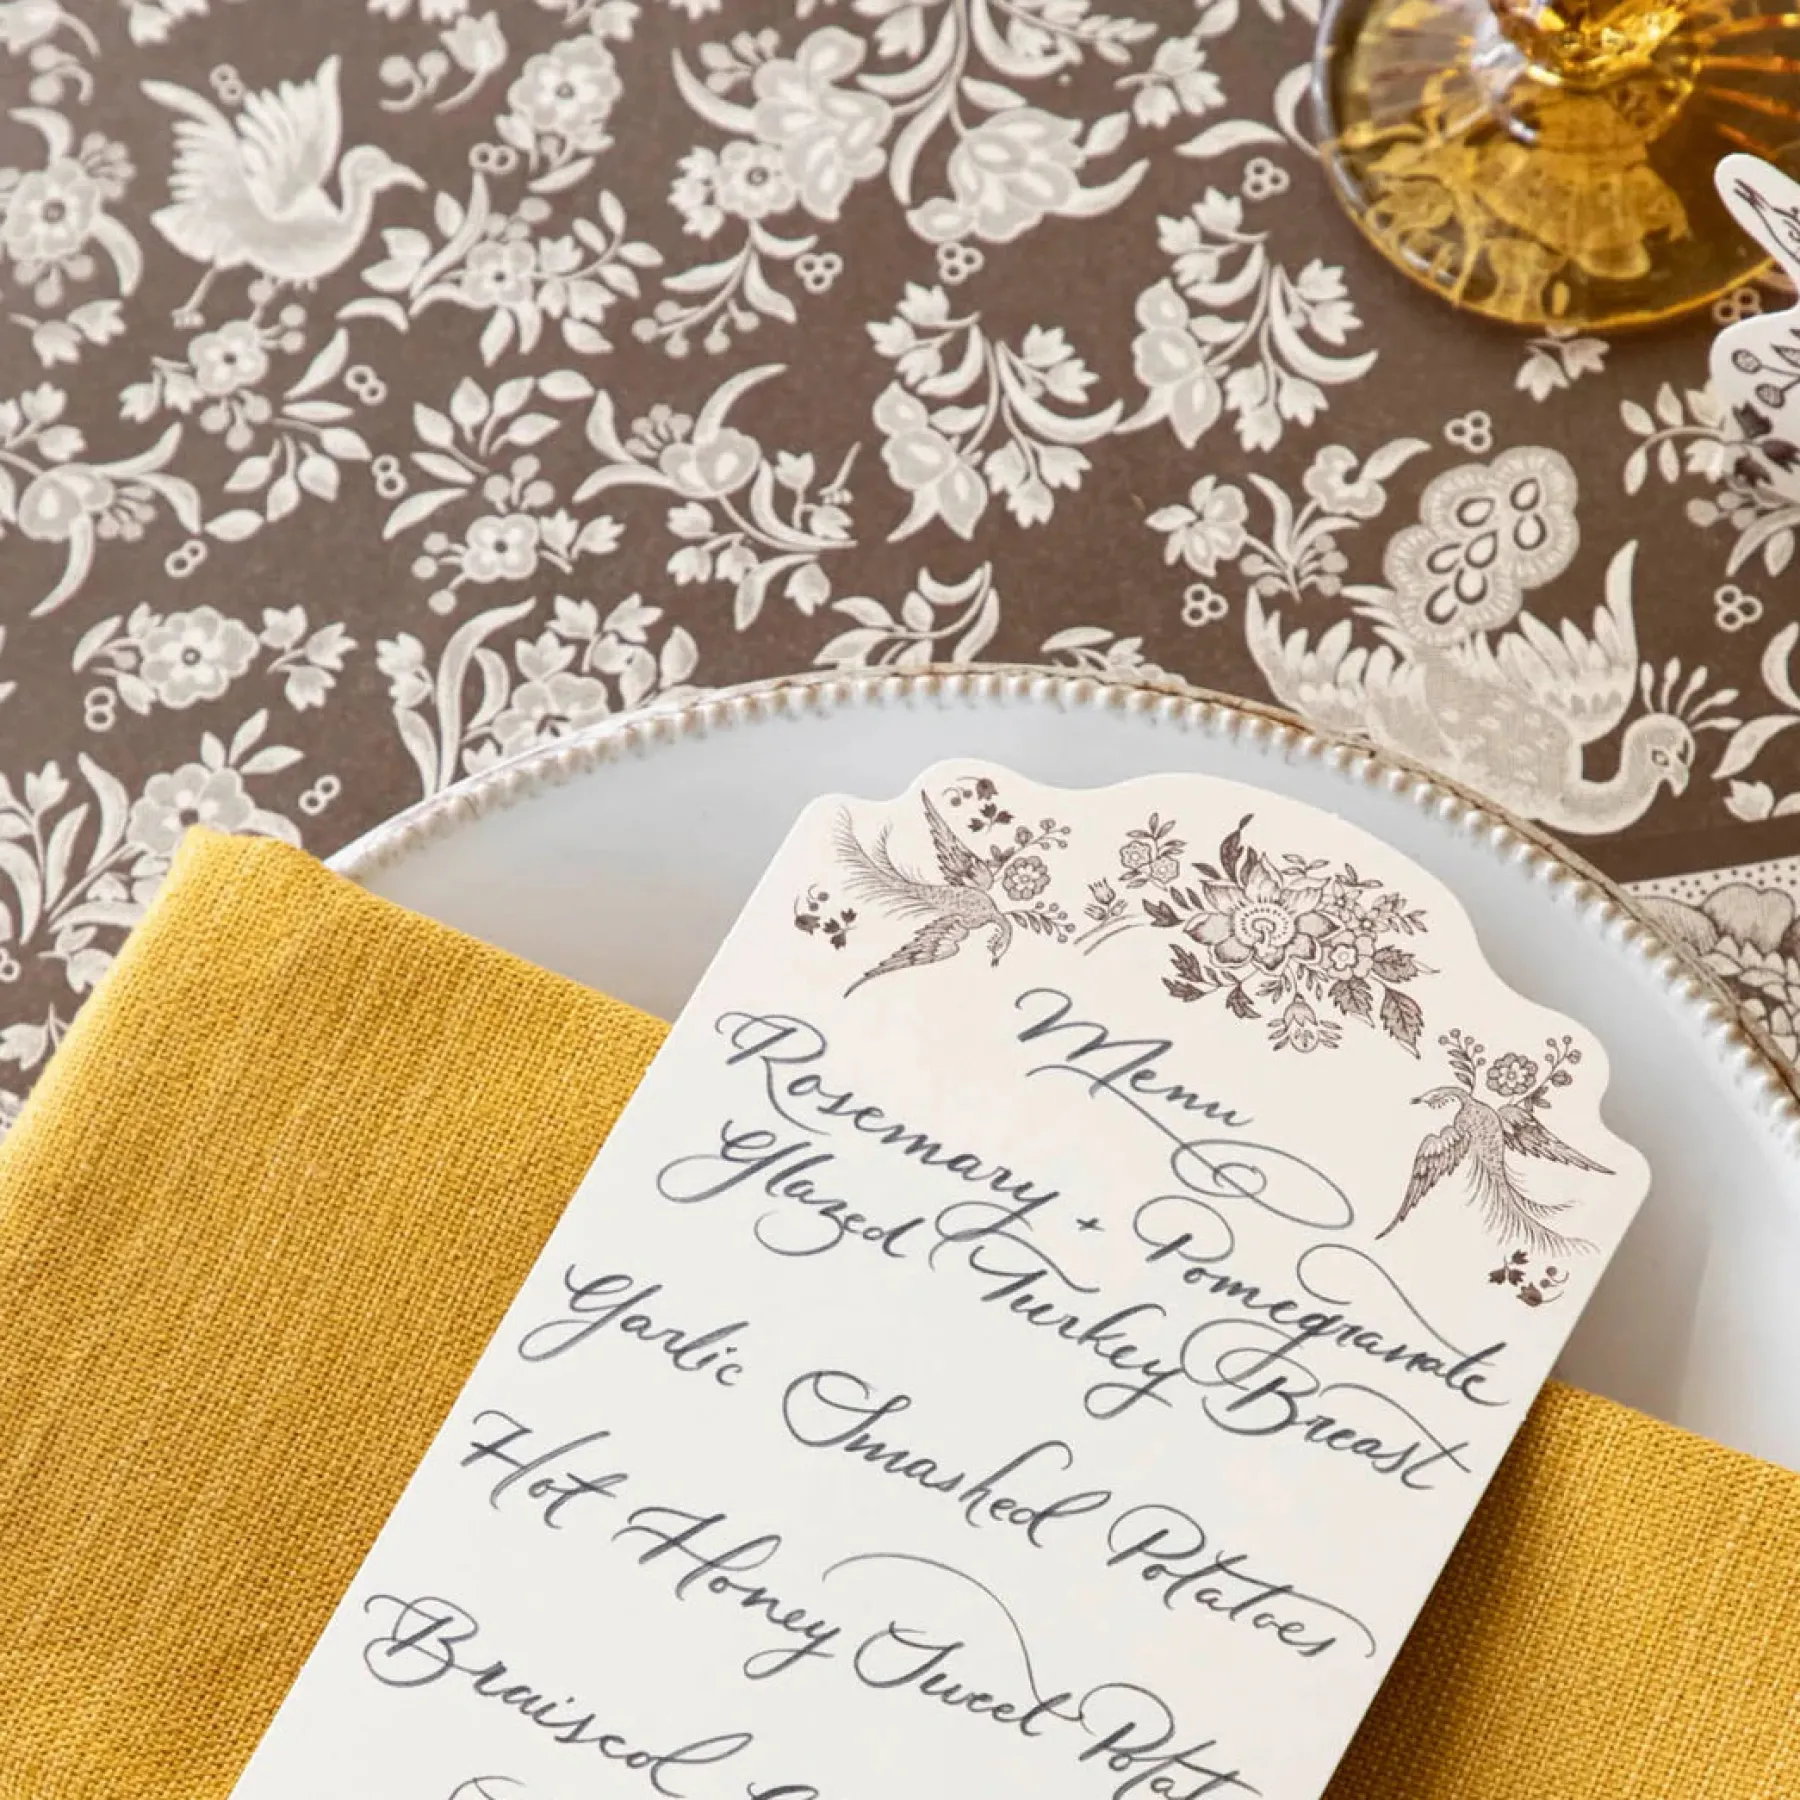 Menu
Rosemary + Pomegranate
Glazed Turkey Breast
Garlic Smashed Potatoes
Hot Honey Sweet Potat
Braised